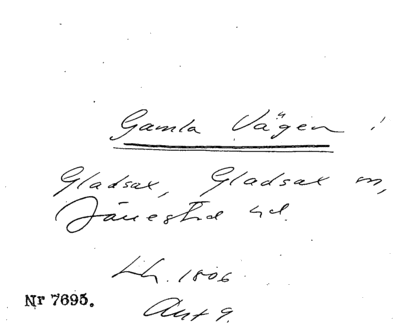 Gamla Vägen i
Gladsax, Gladsax sn,
Järrestad hd.
Lh. 1806
Nr 7695.
Akt 9.